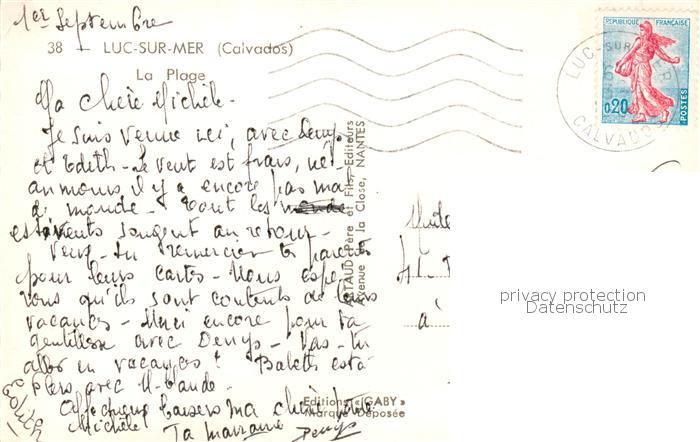 1er Septembre
38 — LUC-SUR-MER (Calvados)
La Plage
Ma Chère Michèle -
Je suis venue ici, avec Denys
et Edith - Le vent est frais, né-
anmoins, il y a encore pas mal
de monde - Tout les
estivants songent au retour -
Veux-tu remercier tes parents
pour leurs cartes - Nous espé-
rons qu'ils sont contents de leurs
vacances - Merci encore pour ta
gentillesse avec Denys - Vas-tu
aller en vacances ?
avec
Affectueux baisers ma chère petite
Michèle
Ta marraine Denys
Editions « GABY »
Marque Déposée
ARTAUD Père et Fils, Editeurs
Avenue de la Close, NANTES
RÉPUBLIQUE FRANÇAISE
0,20
POSTES
LUC-SUR-MER
CALVADOS
à
privacy protection
Datenschutz